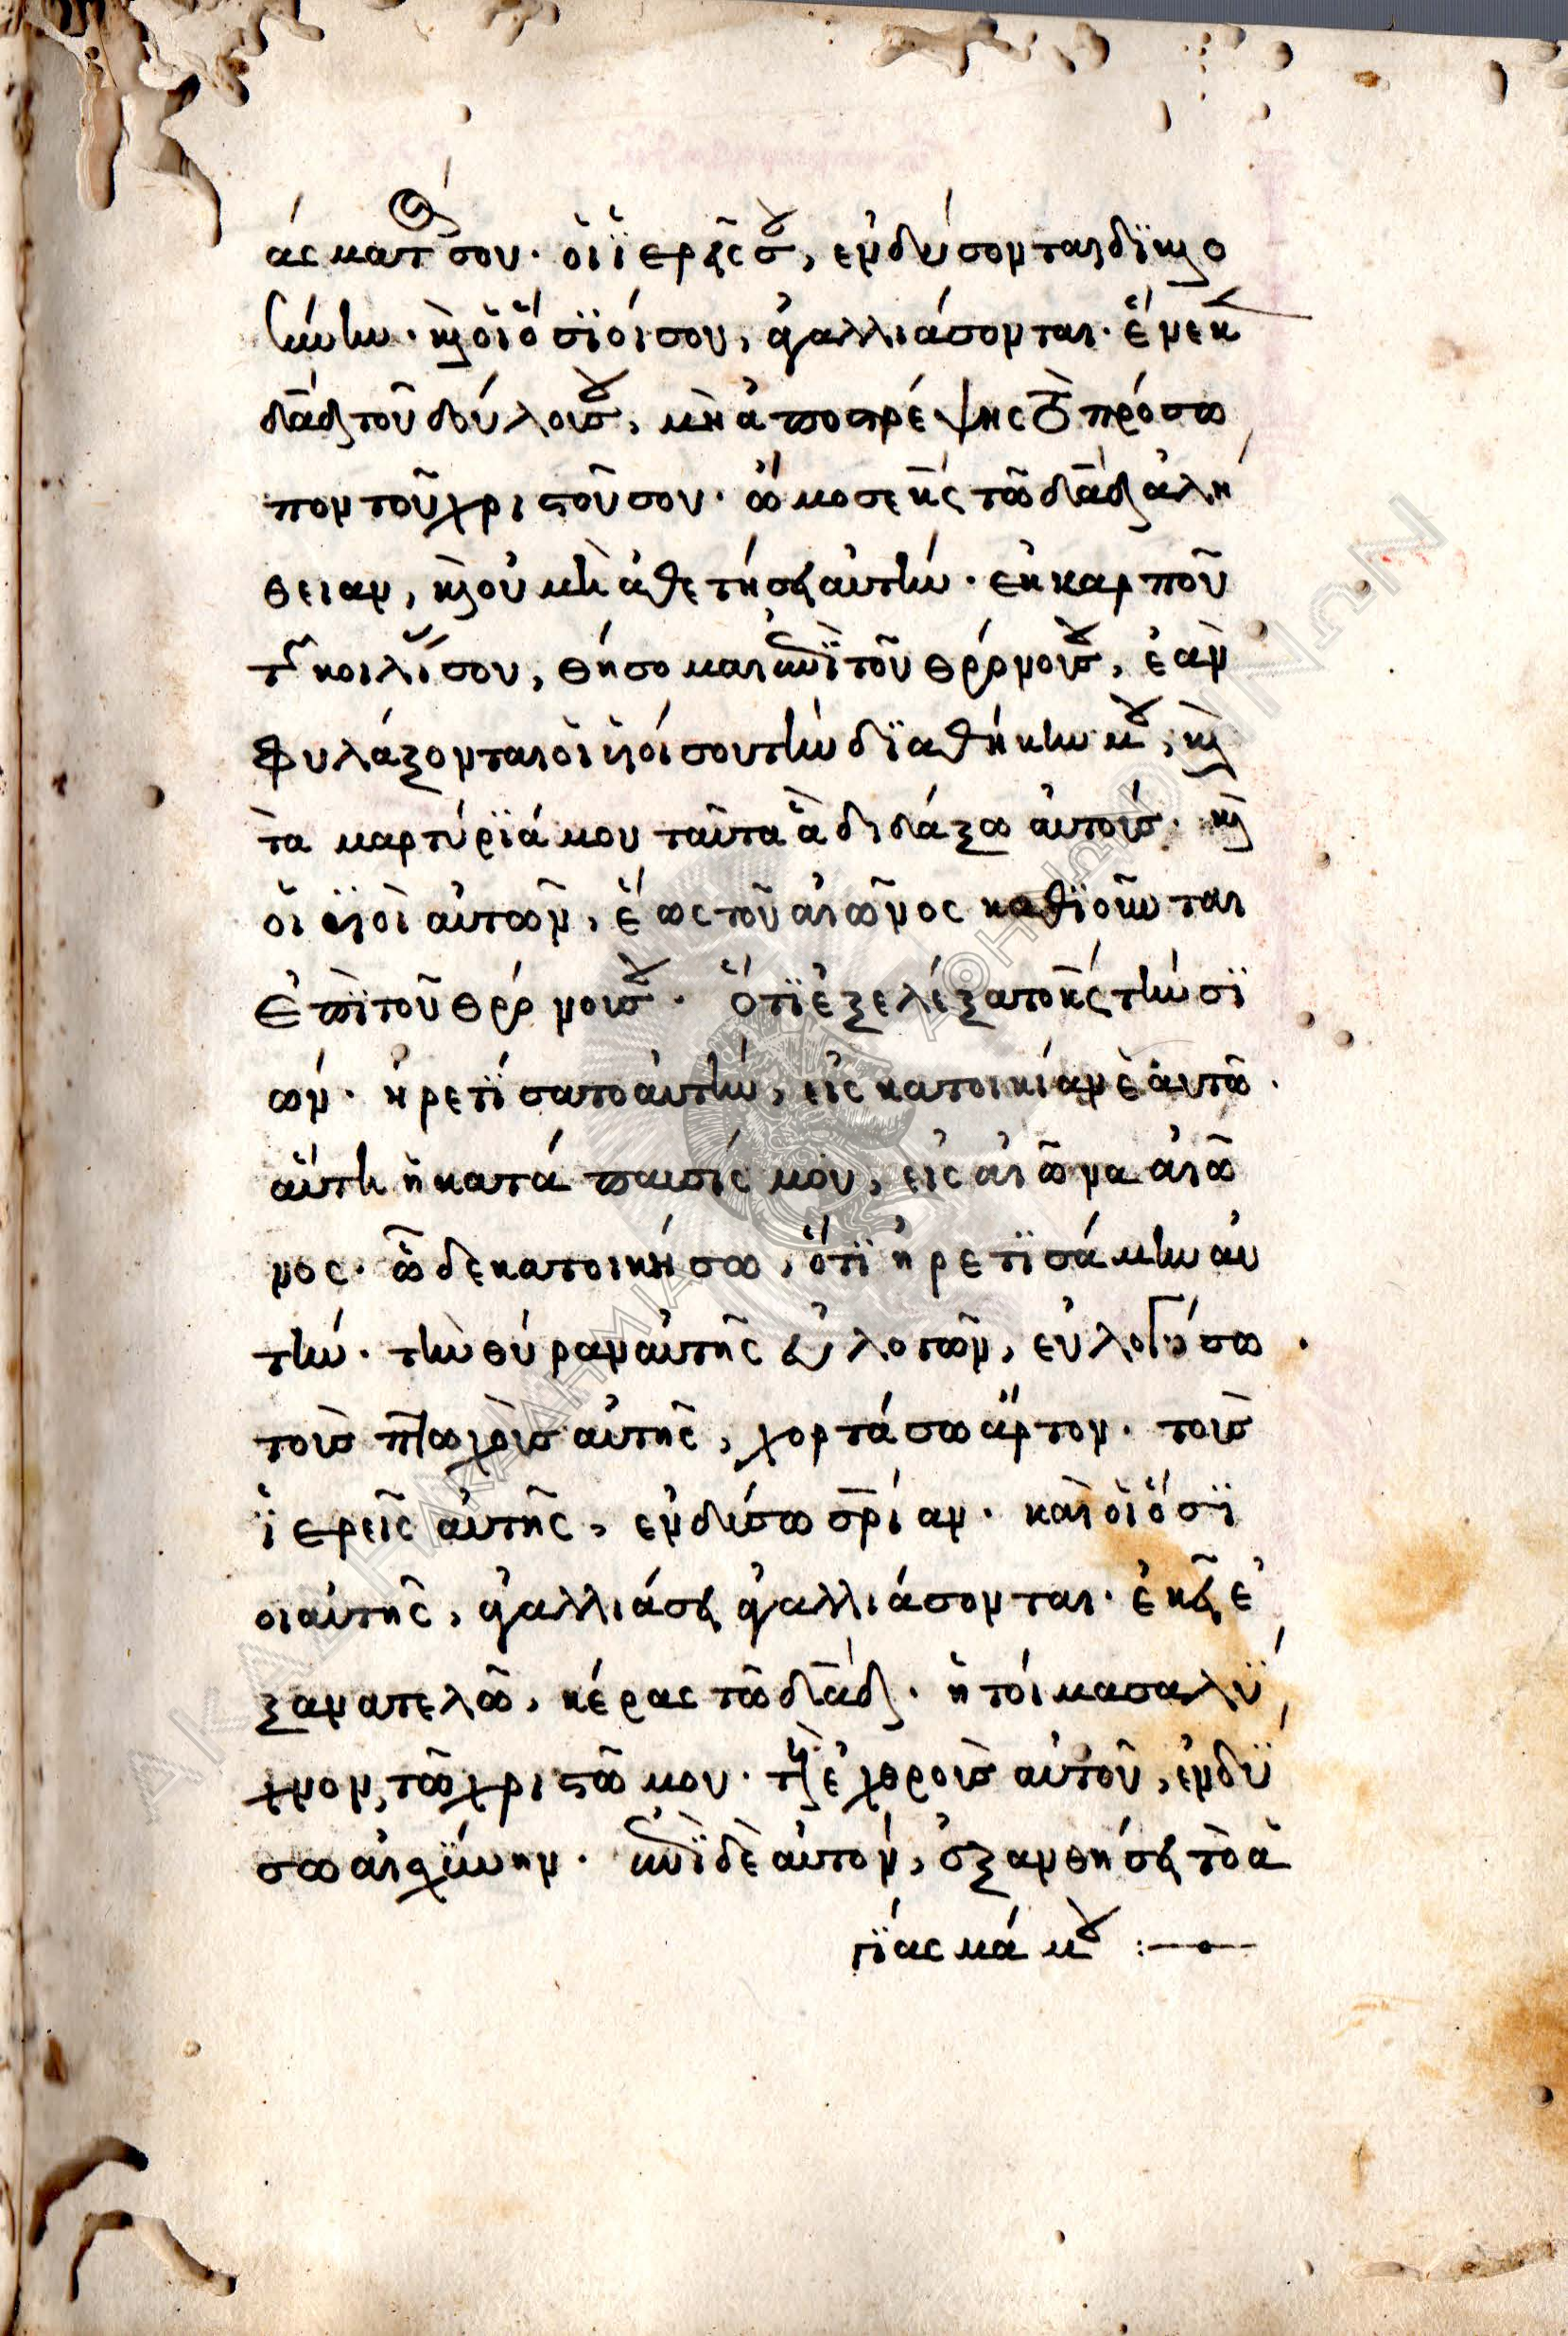 άσματός σου· οἱ ἱερεῖς σου, ἐνδύσονται δικαιο
σύνην· καὶ οἱ ὅσιοί σου, ἀγαλλιάσονται· ἕνεκεν
δαδ τοῦ δούλου σου, μὴ ἀποστρέψης τὸ πρόσω
πον τοῦ χριστοῦ σου· ὤμοσε κς τῶ δαδ ἀλή
θειαν, καὶ οὐ μὴ ἀθετήσει αὐτήν· ἐκ καρποῦ
τῆς κοιλίας σου, θήσομαι ἐπὶ τοῦ θρόνου σου, ἐὰν
φυλάξονται οἱ υἱοί σου τὴν διαθήκην μου, καὶ
τὰ μαρτύριά μου ταῦτα ἃ διδάξω αὐτούς· καὶ
οἱ υἱοὶ αὐτῶν, ἕως τοῦ αἰῶνος καθιοῦνται
ἐπὶ τοῦ θρόνου σου· ὅτι ἐξελέξατο κς τὴν σι
ών· ἡρετίσατο αὐτήν, εἰς κατοικίαν ἑαυτῶ·
αὕτη ἡ κατάπαυσίς μου, εἰς αἰῶνα αἰῶ
νος· ὧδε κατοικήσω, ὅτι ἡρετισάμην αὐ
τήν· τὴν θύραν αὐτῆς εὐλογῶν, εὐλογήσω·
τοὺς πτωχοὺς αὐτῆς, χορτάσω ἄρτον· τοὺς
ἱερεῖς αὐτῆς, ἐνδύσω σρίαν· καὶ οἱ ὅσι
οι αὐτῆς, ἀγαλλιάσει ἀγαλλιάσονται· ἐκεῖ ἐ
ξανατελῶ, κέρας τῶ δαδ· ἡτοίμασα λύ
χνον, τῶ χριστῶ μου· τοὺς ἐχθροὺς αὐτοῦ, ἐνδύ
σω αἰσχύνην· ἐπὶ δὲ αὐτόν, ἐξανθήσει τὸ ἁ
γίασμά μου :—•—
ΑΚΑΔΗΜΙΑ ΑΘΗΝΩΝ